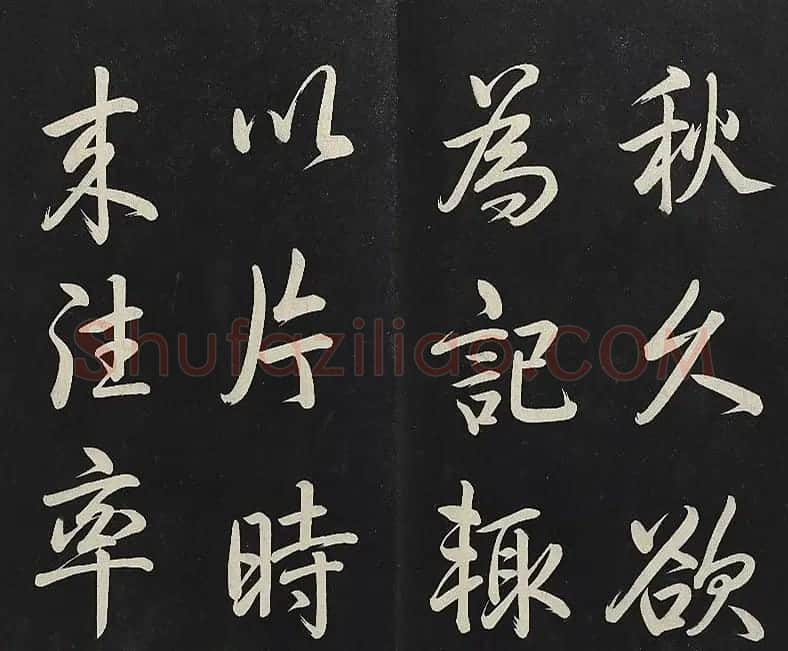 秋久欲
為記輒
以片時
来往率
Shufaziliao.COM